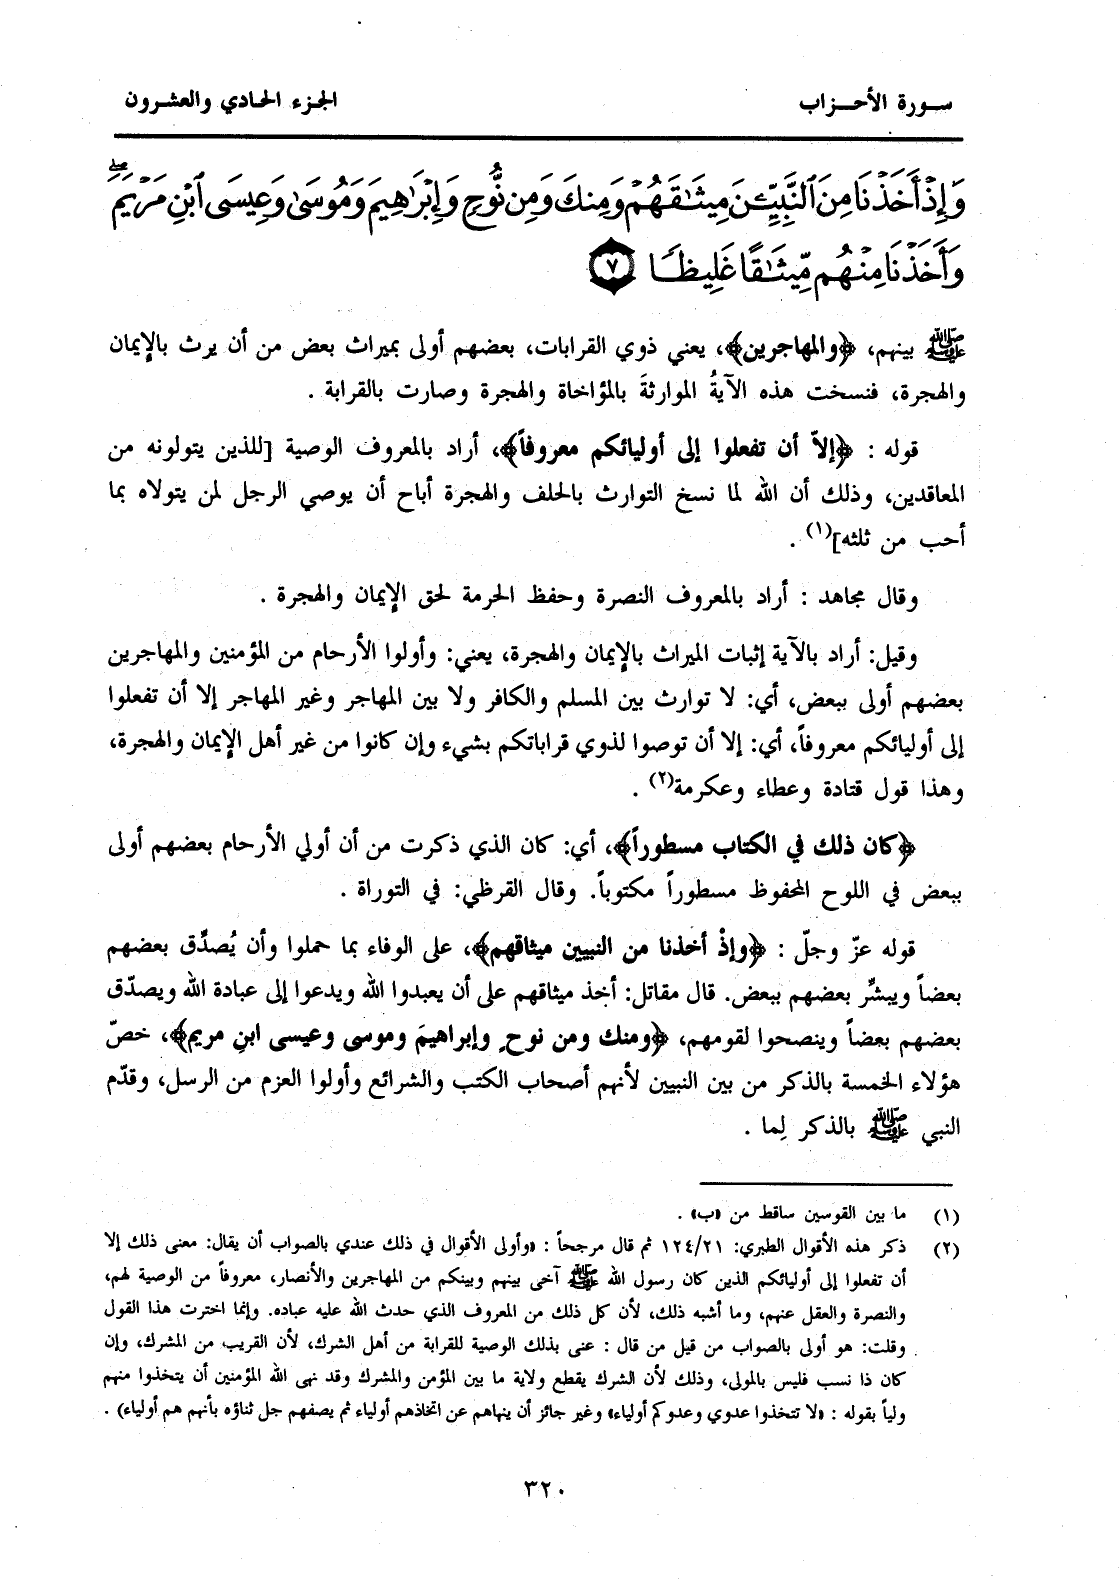 سورة الأحزاب
الجزء الحادي والعشرون
وَإِذْ أَخَذْنَا مِنَ ٱلنَّبِيِّـۧنَ مِيثَـٰقَهُمْ وَمِنكَ وَمِن نُّوحٍ وَإِبْرَٰهِيمَ وَمُوسَىٰ وَعِيسَى ٱبْنِ مَرْيَمَ ۖ
وَأَخَذْنَا مِنْهُم مِّيثَـٰقًا غَلِيظًا ٧
ﷺ بينهم، ﴿والمهاجرين﴾، يعني ذوي القرابات، بعضهم أولى بميراث بعض من أن يرث بالإيمان
والهجرة، فنسخت هذه الآيةُ الموارثةَ بالمؤاخاة والهجرة وصارت بالقرابة .
قوله : ﴿إلاّ أن تفعلوا إلى أوليائكم معروفاً﴾، أراد بالمعروف الوصية [للذين يتولونه من
المعاقدين، وذلك أن الله لما نسخ التوارث بالحلف والهجرة أباح أن يوصي الرجل لمن يتولاه بما
أحب من ثلثه](١) .
وقال مجاهد : أراد بالمعروف النصرة وحفظ الحرمة لحق الإيمان والهجرة .
وقيل: أراد بالآية إثبات الميراث بالإيمان والهجرة، يعني: وأولوا الأرحام من المؤمنين والمهاجرين
بعضهم أولى ببعض، أي: لا توارث بين المسلم والكافر ولا بين المهاجر وغير المهاجر إلا أن تفعلوا
إلى أوليائكم معروفاً، أي: إلا أن توصوا لذوي قراباتكم بشيء وإن كانوا من غير أهل الإيمان والهجرة،
وهذا قول قتادة وعطاء وعكرمة(٢) .
﴿كان ذلك في الكتاب مسطوراً﴾، أي: كان الذي ذكرت من أن أولي الأرحام بعضهم أولى
ببعض في اللوح المحفوظ مسطوراً مكتوباً. وقال القرظي: في التوراة .
قوله عزّ وجلّ : ﴿وإذْ أخذنا من النبيين ميثاقهم﴾، على الوفاء بما حملوا وأن يُصدِّق بعضهم
بعضاً ويبشِّر بعضهم ببعض. قال مقاتل: أخذ ميثاقهم على أن يعبدوا الله ويدعوا إلى عبادة الله ويصدّق
بعضهم بعضاً وينصحوا لقومهم، ﴿ومنك ومن نوحٍ وإبراهيمَ وموسى وعيسى ابنِ مريم﴾، خصّ
هؤلاء الخمسة بالذكر من بين النبيين لأنهم أصحاب الكتب والشرائع وأولوا العزم من الرسل، وقدّم
النبي ﷺ بالذكر لِما .
(١) ما بين القوسين ساقط من «ب» .
(٢) ذكر هذه الأقوال الطبري: ١٢٤/٢١ ثم قال مرجحاً : «وأولى الأقوال في ذلك عندي بالصواب أن يقال: معنى ذلك إلا
أن تفعلوا إلى أوليائكم الذين كان رسول الله ﷺ آخى بينهم وبينكم من المهاجرين والأنصار، معروفاً من الوصية لهم،
والنصرة والعقل عنهم، وما أشبه ذلك، لأن كل ذلك من المعروف الذي حدث الله عليه عباده. وإنما اخترت هذا القول
وقلت: هو أولى بالصواب من قيل من قال : عنى بذلك الوصية للقرابة من أهل الشرك، لأن القريب من المشرك، وإن
كان ذا نسب فليس بالمولى، وذلك لأن الشرك يقطع ولاية ما بين المؤمن والمشرك وقد نهى الله المؤمنين أن يتخذوا منهم
ولياً بقوله : «لا تتخذوا عدوي وعدوكم أولياء» وغير جائز أن ينهاهم عن اتخاذهم أولياء ثم يصفهم جل ثناؤه بأنهم هم أولياء) .
٣٢٠